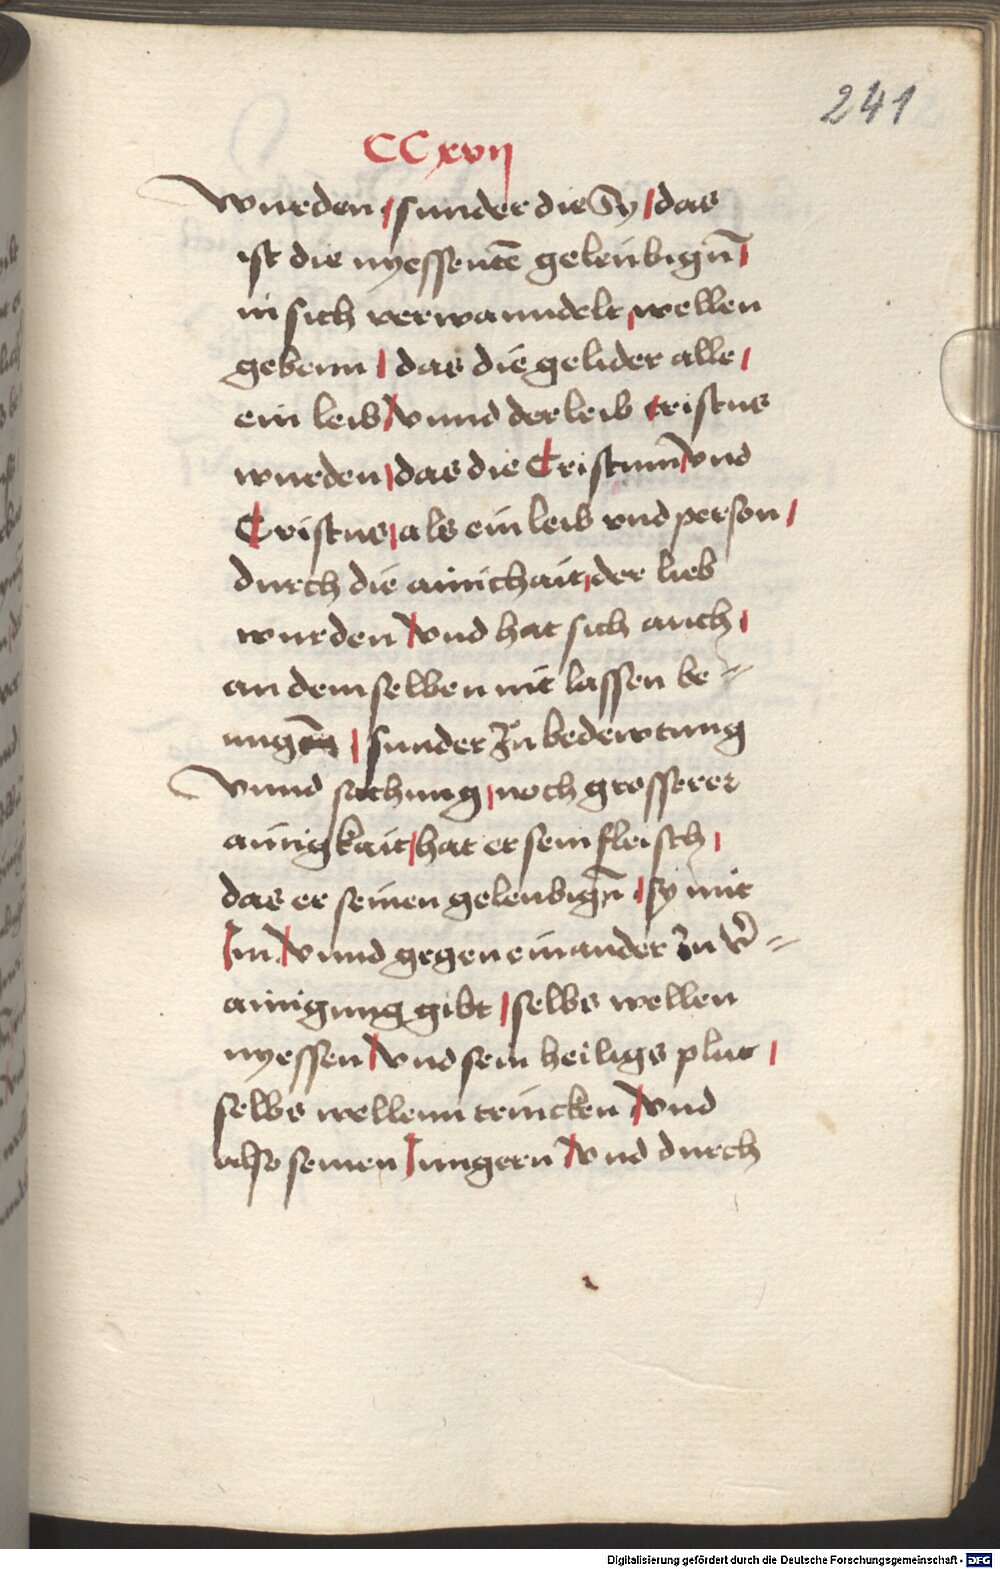 241
CCxvij
wurden / sunder die Sy / das
ist die nyessentē geleubign̄ /
in sich verwanndelt / wellen
gebenn / das die gelider alle /
ein leib / vnnd der leib cristus
wurden / das die Cristum̄ / vnd
Cristus / als ein leib vnd person /
durch die ainichait / der lieb
wurden / vnd hat sich auch /
an dem selben nit lassen be⸗
nugen / sunder zu bedewtung
vnnd sachung / noch grosserer
ainigkait / hat er sein fleisch /
das er seinen geleubign̄ / sy mit
Im / vnnd gegen einander zu v̉⸗
ainigung gibt / selbs wellen
nyessen / vnd sein heiligs plut /
selbs wellenn trincken / vnd
also seinen Jungern / vnd durch
Digitalisierung gefördert durch die Deutsche Forschungsgemeinschaft - DFG